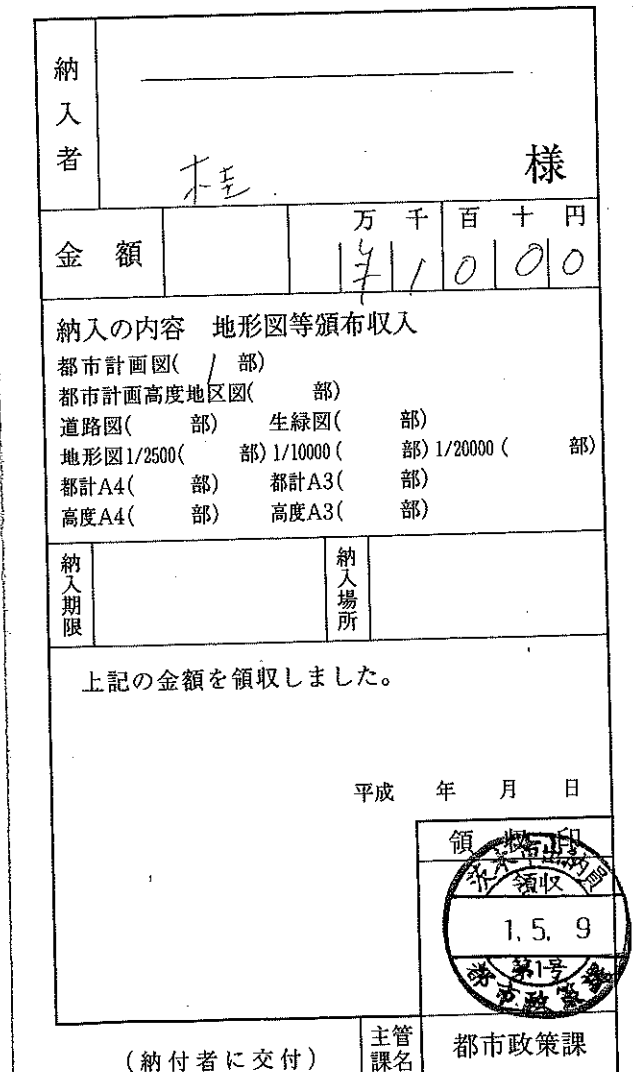 納入者
桂 様
金額 万 千 百 十 円
¥ 1 0 0 0
納入の内容 地形図等頒布収入
都市計画図( 1 部)
都市計画高度地区図( 部)
道路図( 部) 生緑図( 部)
地形図1/2500( 部) 1/10000( 部) 1/20000( 部)
都計A4( 部) 都計A3( 部)
高度A4( 部) 高度A3( 部)
納入期限 納入場所
上記の金額を領収しました。
平成 年 月 日
領収印
茨木市出納員
領収
1.5.9
第1号
都市政策課
(納付者に交付) 主管課名 都市政策課